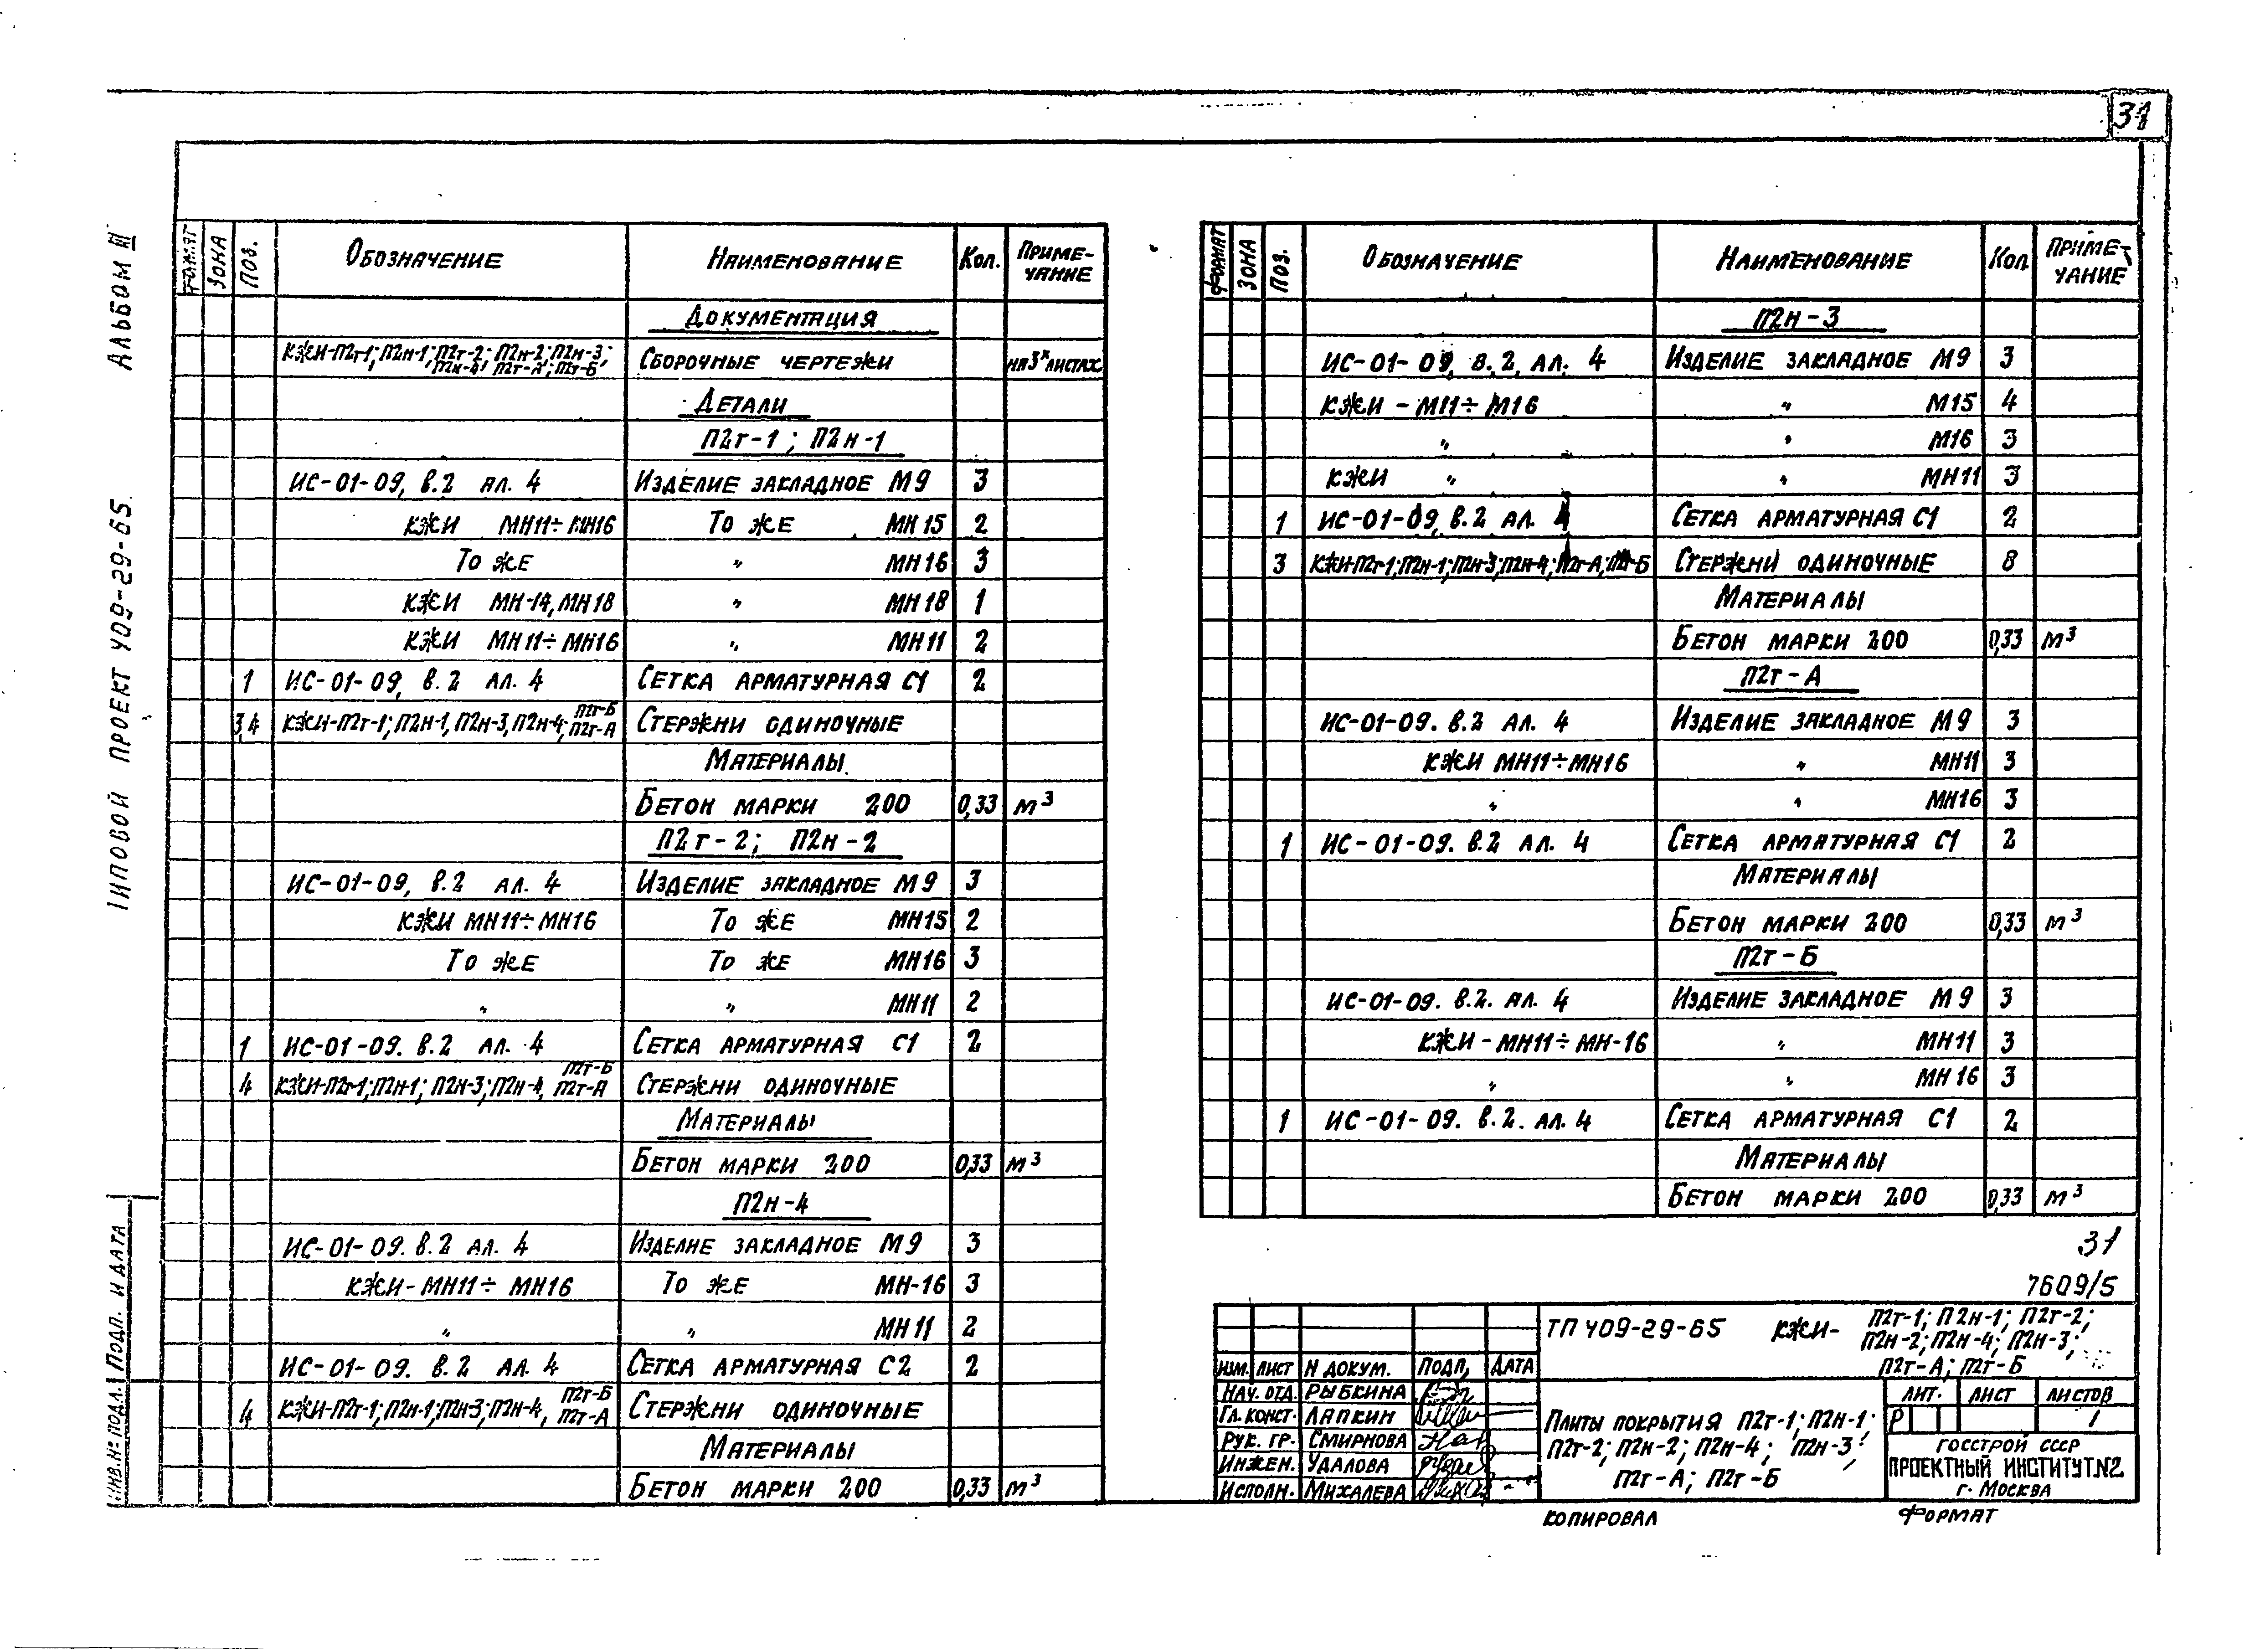 31
АЛЬБОМ III
ТИПОВОЙ ПРОЕКТ 409-29-65
ИНВ.№ ПОДЛ. ПОДП. И ДАТА
ФОРМАТ ЗОНА ПОЗ. ОБОЗНАЧЕНИЕ НАИМЕНОВАНИЕ КОЛ. ПРИМЕ-
ЧАНИЕ
ДОКУМЕНТАЦИЯ
КЖИ-П2т-1; П2н-1; П2т-2; П2н-2; П2н-3; СБОРОЧНЫЕ ЧЕРТЕЖИ НА 3х ЛИСТАХ
П2н-4; П2т-А; П2т-Б
ДЕТАЛИ
П2т-1; П2н-1
ИС-01-09, В.2 АЛ. 4 ИЗДЕЛИЕ ЗАКЛАДНОЕ М9 3
КЖИ МН11÷МН16 ТО ЖЕ МН15 2
ТО ЖЕ " МН16 3
КЖИ МН-14, МН18 " МН18 1
КЖИ МН11÷МН16 " МН11 2
1 ИС-01-09, В.2 АЛ. 4 СЕТКА АРМАТУРНАЯ С1 2
3,4 КЖИ-П2т-1; П2н-1, П2н-3, П2н-4; П2т-Б П2т-А СТЕРЖНИ ОДИНОЧНЫЕ
МАТЕРИАЛЫ
БЕТОН МАРКИ 200 0,33 м³
П2т-2; П2н-2
ИС-01-09, В.2 АЛ. 4 ИЗДЕЛИЕ ЗАКЛАДНОЕ М9 3
КЖИ МН11÷МН16 ТО ЖЕ МН15 2
ТО ЖЕ ТО ЖЕ МН16 3
" " МН11 2
1 ИС-01-09. В.2 АЛ. 4 СЕТКА АРМАТУРНАЯ С1 2
4 КЖИ-П2т-1; П2н-1; П2н-3; П2н-4, П2т-Б П2т-А СТЕРЖНИ ОДИНОЧНЫЕ
МАТЕРИАЛЫ
БЕТОН МАРКИ 200 0,33 м³
П2н-4
ИС-01-09. В.2 АЛ. 4 ИЗДЕЛИЕ ЗАКЛАДНОЕ М9 3
КЖИ-МН11÷МН16 ТО ЖЕ МН-16 3
" " МН11 2
ИС-01-09. В.2 АЛ. 4 СЕТКА АРМАТУРНАЯ С2 2
4 КЖИ-П2т-1; П2н-1; П2н-3; П2н-4, П2т-Б П2т-А СТЕРЖНИ ОДИНОЧНЫЕ
МАТЕРИАЛЫ
БЕТОН МАРКИ 200 0,33 м³
ФОРМАТ ЗОНА ПОЗ. ОБОЗНАЧЕНИЕ НАИМЕНОВАНИЕ КОЛ ПРИМЕ-
ЧАНИЕ
П2н-3
ИС-01-09, В.2, АЛ. 4 ИЗДЕЛИЕ ЗАКЛАДНОЕ М9 3
КЖИ - М11÷М16 " М15 4
" " М16 3
КЖИ " " МН11 3
1 ИС-01-09, В.2 АЛ. 4 СЕТКА АРМАТУРНАЯ С1 2
3 КЖИ-П2т-1; П2н-1; П2н-3; П2н-4; П2т-А; П2т-Б СТЕРЖНИ ОДИНОЧНЫЕ 8
МАТЕРИАЛЫ
БЕТОН МАРКИ 200 0,33 м³
П2т-А
ИС-01-09. В.2 АЛ. 4 ИЗДЕЛИЕ ЗАКЛАДНОЕ М9 3
КЖИ МН11÷МН16 " МН11 3
" " МН16 3
1 ИС-01-09. В.2 АЛ. 4 СЕТКА АРМАТУРНАЯ С1 2
МАТЕРИАЛЫ
БЕТОН МАРКИ 200 0,33 м³
П2т-Б
ИС-01-09. В.2. АЛ. 4 ИЗДЕЛИЕ ЗАКЛАДНОЕ М9 3
КЖИ-МН11÷МН-16 " МН11 3
" " МН16 3
1 ИС-01-09. В.2. АЛ. 4 СЕТКА АРМАТУРНАЯ С1 2
МАТЕРИАЛЫ
БЕТОН МАРКИ 200 0,33 м³
31
7609/5
ТП 409-29-65 КЖИ- П2т-1; П2н-1; П2т-2;
П2н-2; П2н-4; П2н-3;
П2т-А; П2т-Б
ИЗМ. ЛИСТ N ДОКУМ. ПОДП. ДАТА
НАЧ. ОТД. РЫБКИНА
ГЛ. КОНСТ. ЛАПКИН
РУК. ГР. СМИРНОВА
ИНЖЕН. УДАЛОВА
ИСПОЛН. МИХАЛЕВА
ПЛИТЫ ПОКРЫТИЯ П2т-1; П2н-1;
П2т-2; П2н-2; П2н-4; П2н-3;
П2т-А; П2т-Б
ЛИТ. ЛИСТ ЛИСТОВ
Р 1
ГОССТРОЙ СССР
ПРОЕКТНЫЙ ИНСТИТУТ №2
Г. МОСКВА
КОПИРОВАЛ ФОРМАТ